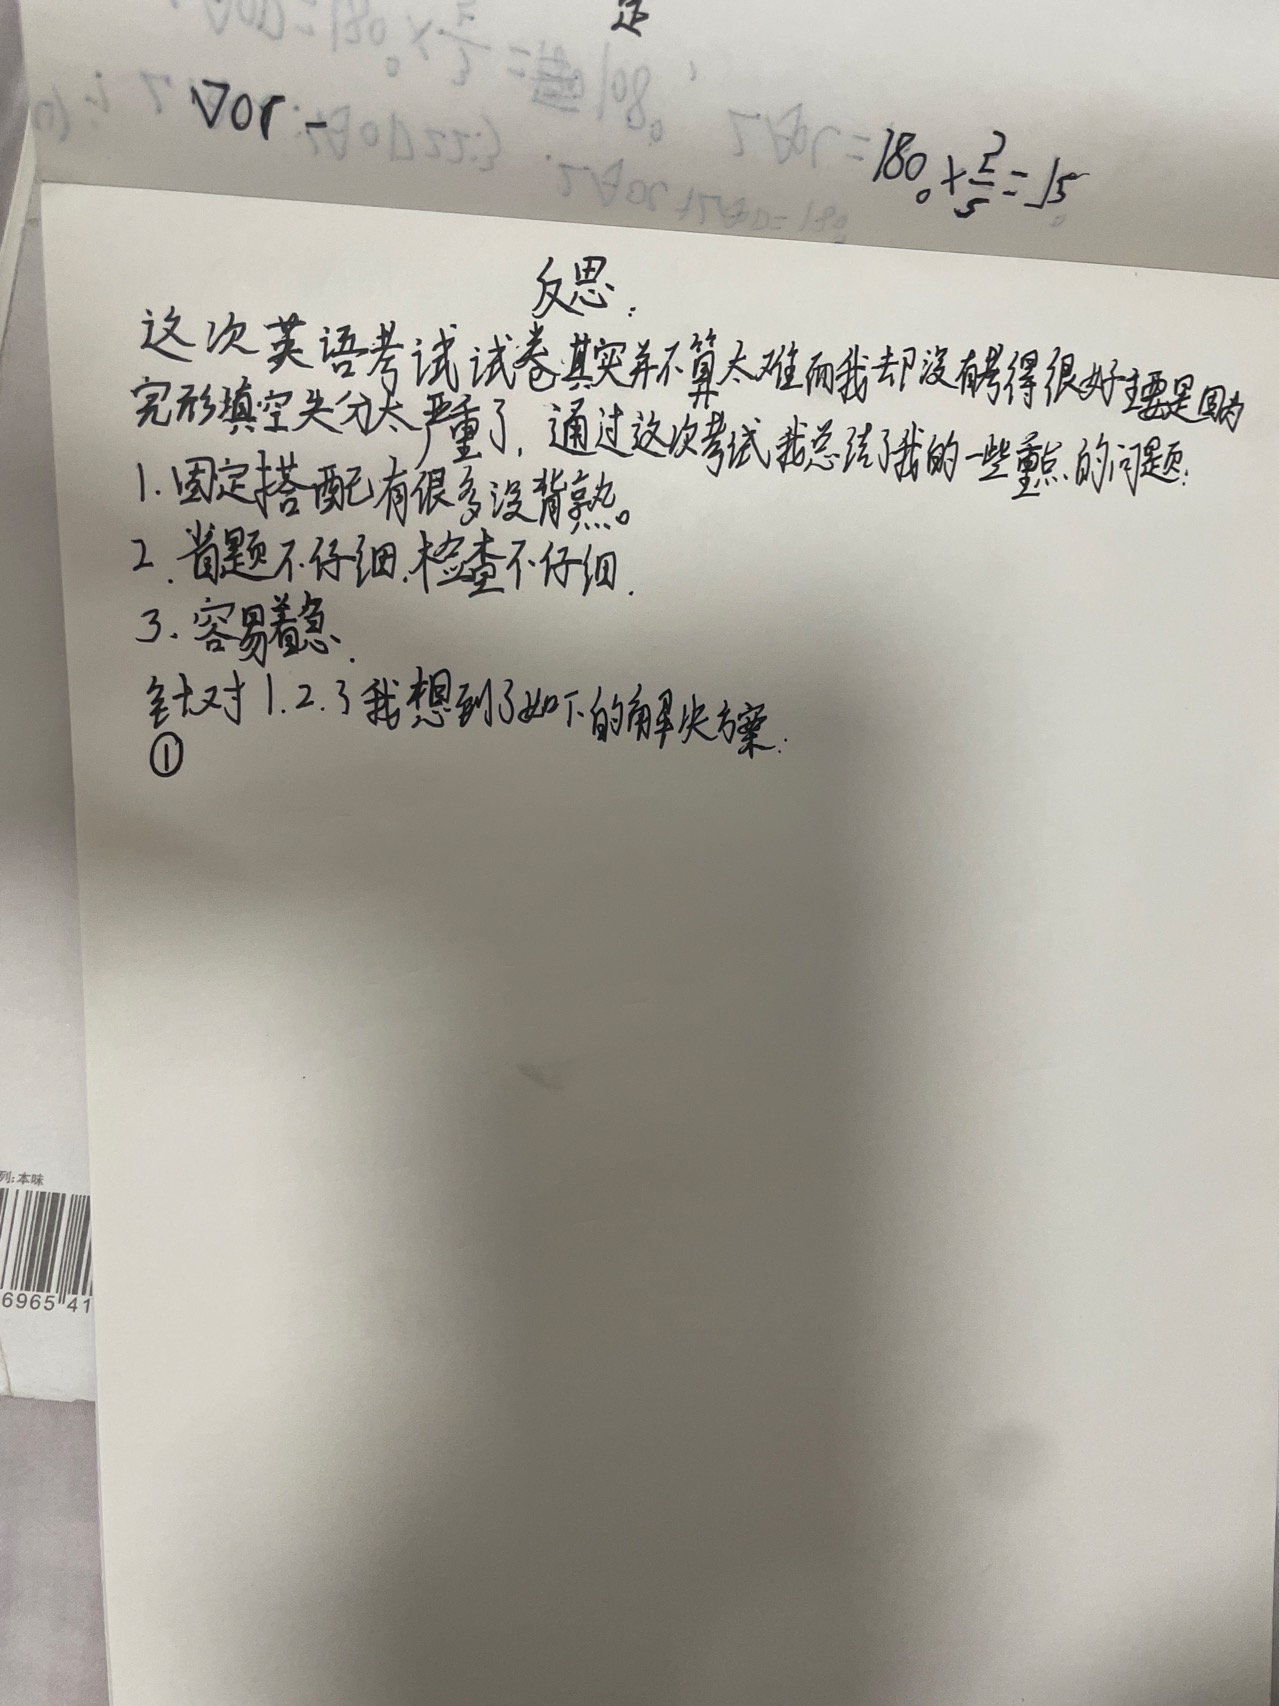 是
∇or -
180° × 2/5 = 15
反思:
这次英语考试试卷其实并不算太难而我却没有考得很好主要是因为
完形填空失分太严重了,通过这次考试我总结了我的一些重点的问题:
1.固定搭配有很多没背熟。
2.省题不仔细.检查不仔细.
3.容易着急.
针对1.2.3我想到了如下的解决方案:
①
列:本味
6965 41